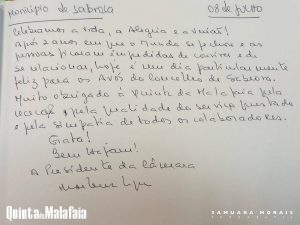 Município de Sabrosa 08 de Julho
Celebramos a vida, a Alegria e a união!
Após 2 anos em que o mundo se fechou e as
pessoas ficaram impedidas de conviver e de
se relacionar, hoje é um dia particularmente
feliz para os Avós do Concelho de Sabrosa.
Muito obrigado à Quinta da Malafaia pela
receção e pela qualidade do serviço prestado
e pela simpatia de todos os colaboradores.
Grata!
Bem Hajam!
A Presidente da Câmara
Quinta da Malafaia
SAMUARA MORAIS